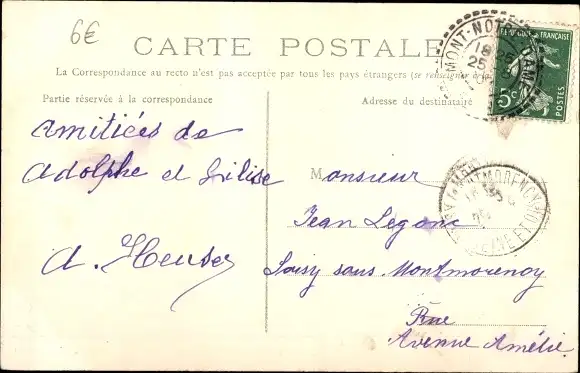 6€
CARTE POSTALE
La Correspondance au recto n'est pas acceptée par tous les pays étrangers (se renseigner
Partie réservée à la correspondance
Adresse du destinataire
RÉPUBLIQUE FRANÇAISE
5c
POSTES
MONT-NOTRE-DAME
18
25
Amitiées de
Adolphe et
A. Heuse
Monsieur
Jean Legonc
Soisy sous Montmorency
Rue
Avenue Amélie
MONTMORENCY
SEINE ET OISE